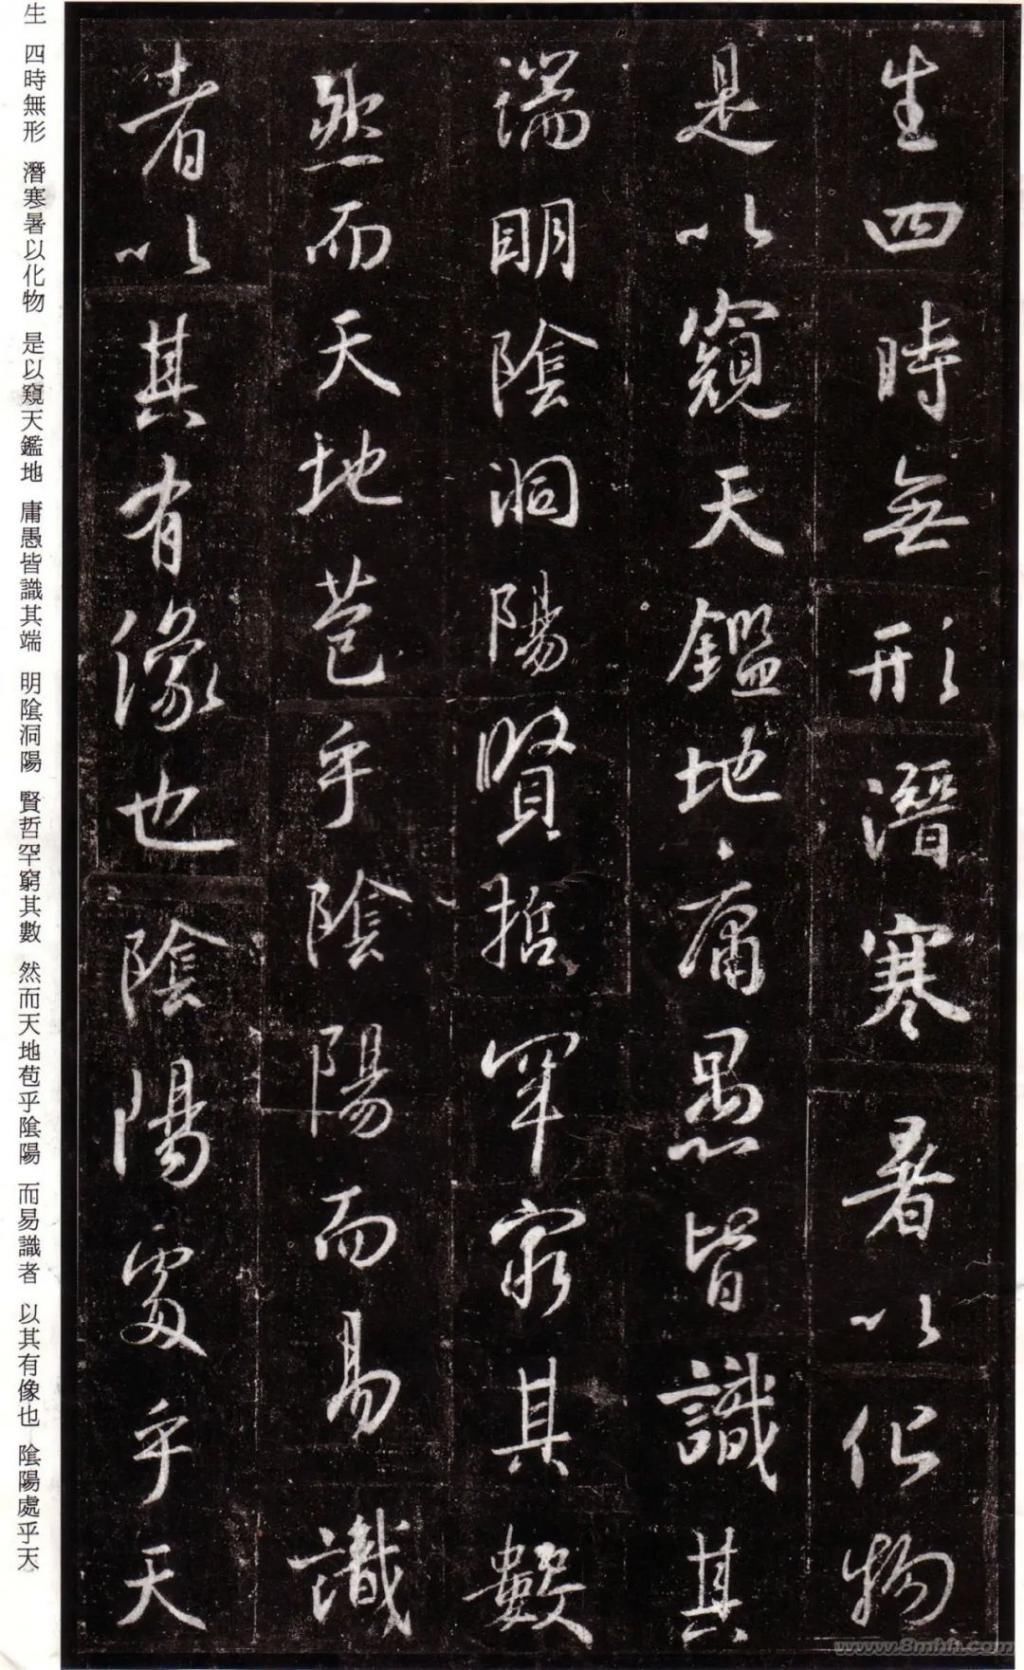 生四時無形潛寒暑以化物
是以窺天鑑地庸愚皆識其
端明陰洞陽賢哲罕窮其數
然而天地苞乎陰陽而易識
者以其有像也陰陽處乎天
生 四時無形 潛寒暑以化物 是以窺天鑑地 庸愚皆識其端 明陰洞陽 賢哲罕窮其數 然而天地苞乎陰陽 而易識者 以其有像也 陰陽處乎天